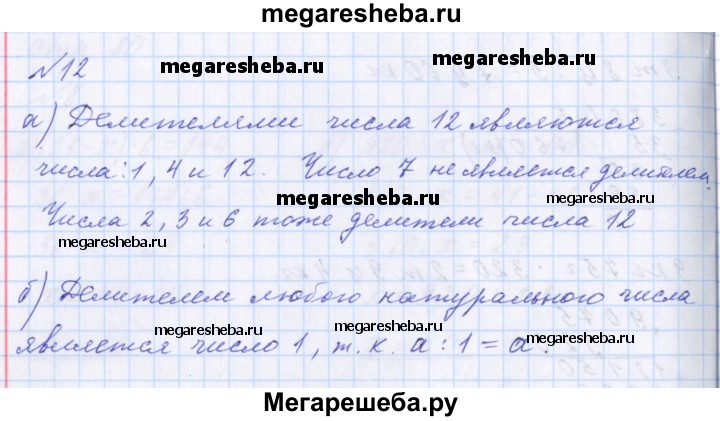 megaresheba.ru
№12
megaresheba.ru megaresheba.ru
а) Делителями числа 12 являются
числа: 1, 4 и 12. Число 7 не является делителем.
megaresheba.ru
Числа 2, 3 и 6 тоже делители числа 12
megaresheba.ru megaresheba.ru
б) Делителем любого натурального числа
megaresheba.ru megaresheba.ru megaresheba.ru
является число 1, т. к. а : 1 = а.
Мегарешеба.ру